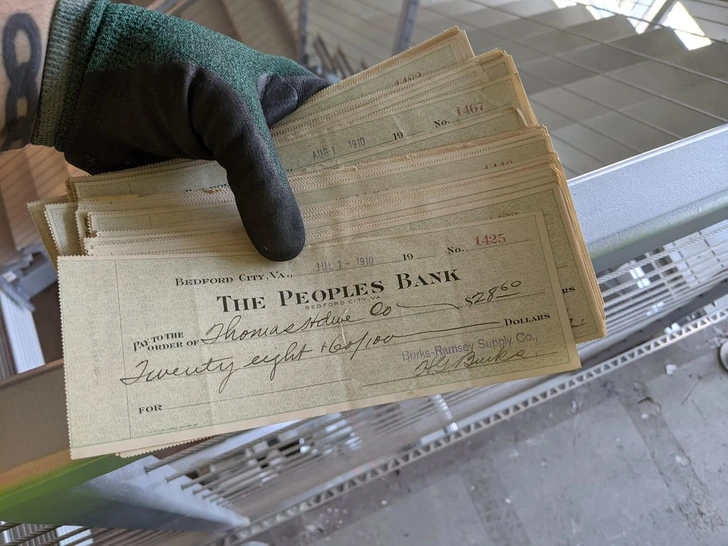 8
AUG 1 1910 19 No. 1467
BEDFORD CITY, VA., JUL 1 - 1910 19 No. 1425
THE PEOPLES BANK
BEDFORD CITY, VA.
PAY TO THE
ORDER OF Thomas Hdwe Co $28 60
Twenty eight + 60/100 DOLLARS
Burks-Ramsey Supply Co.,
FOR